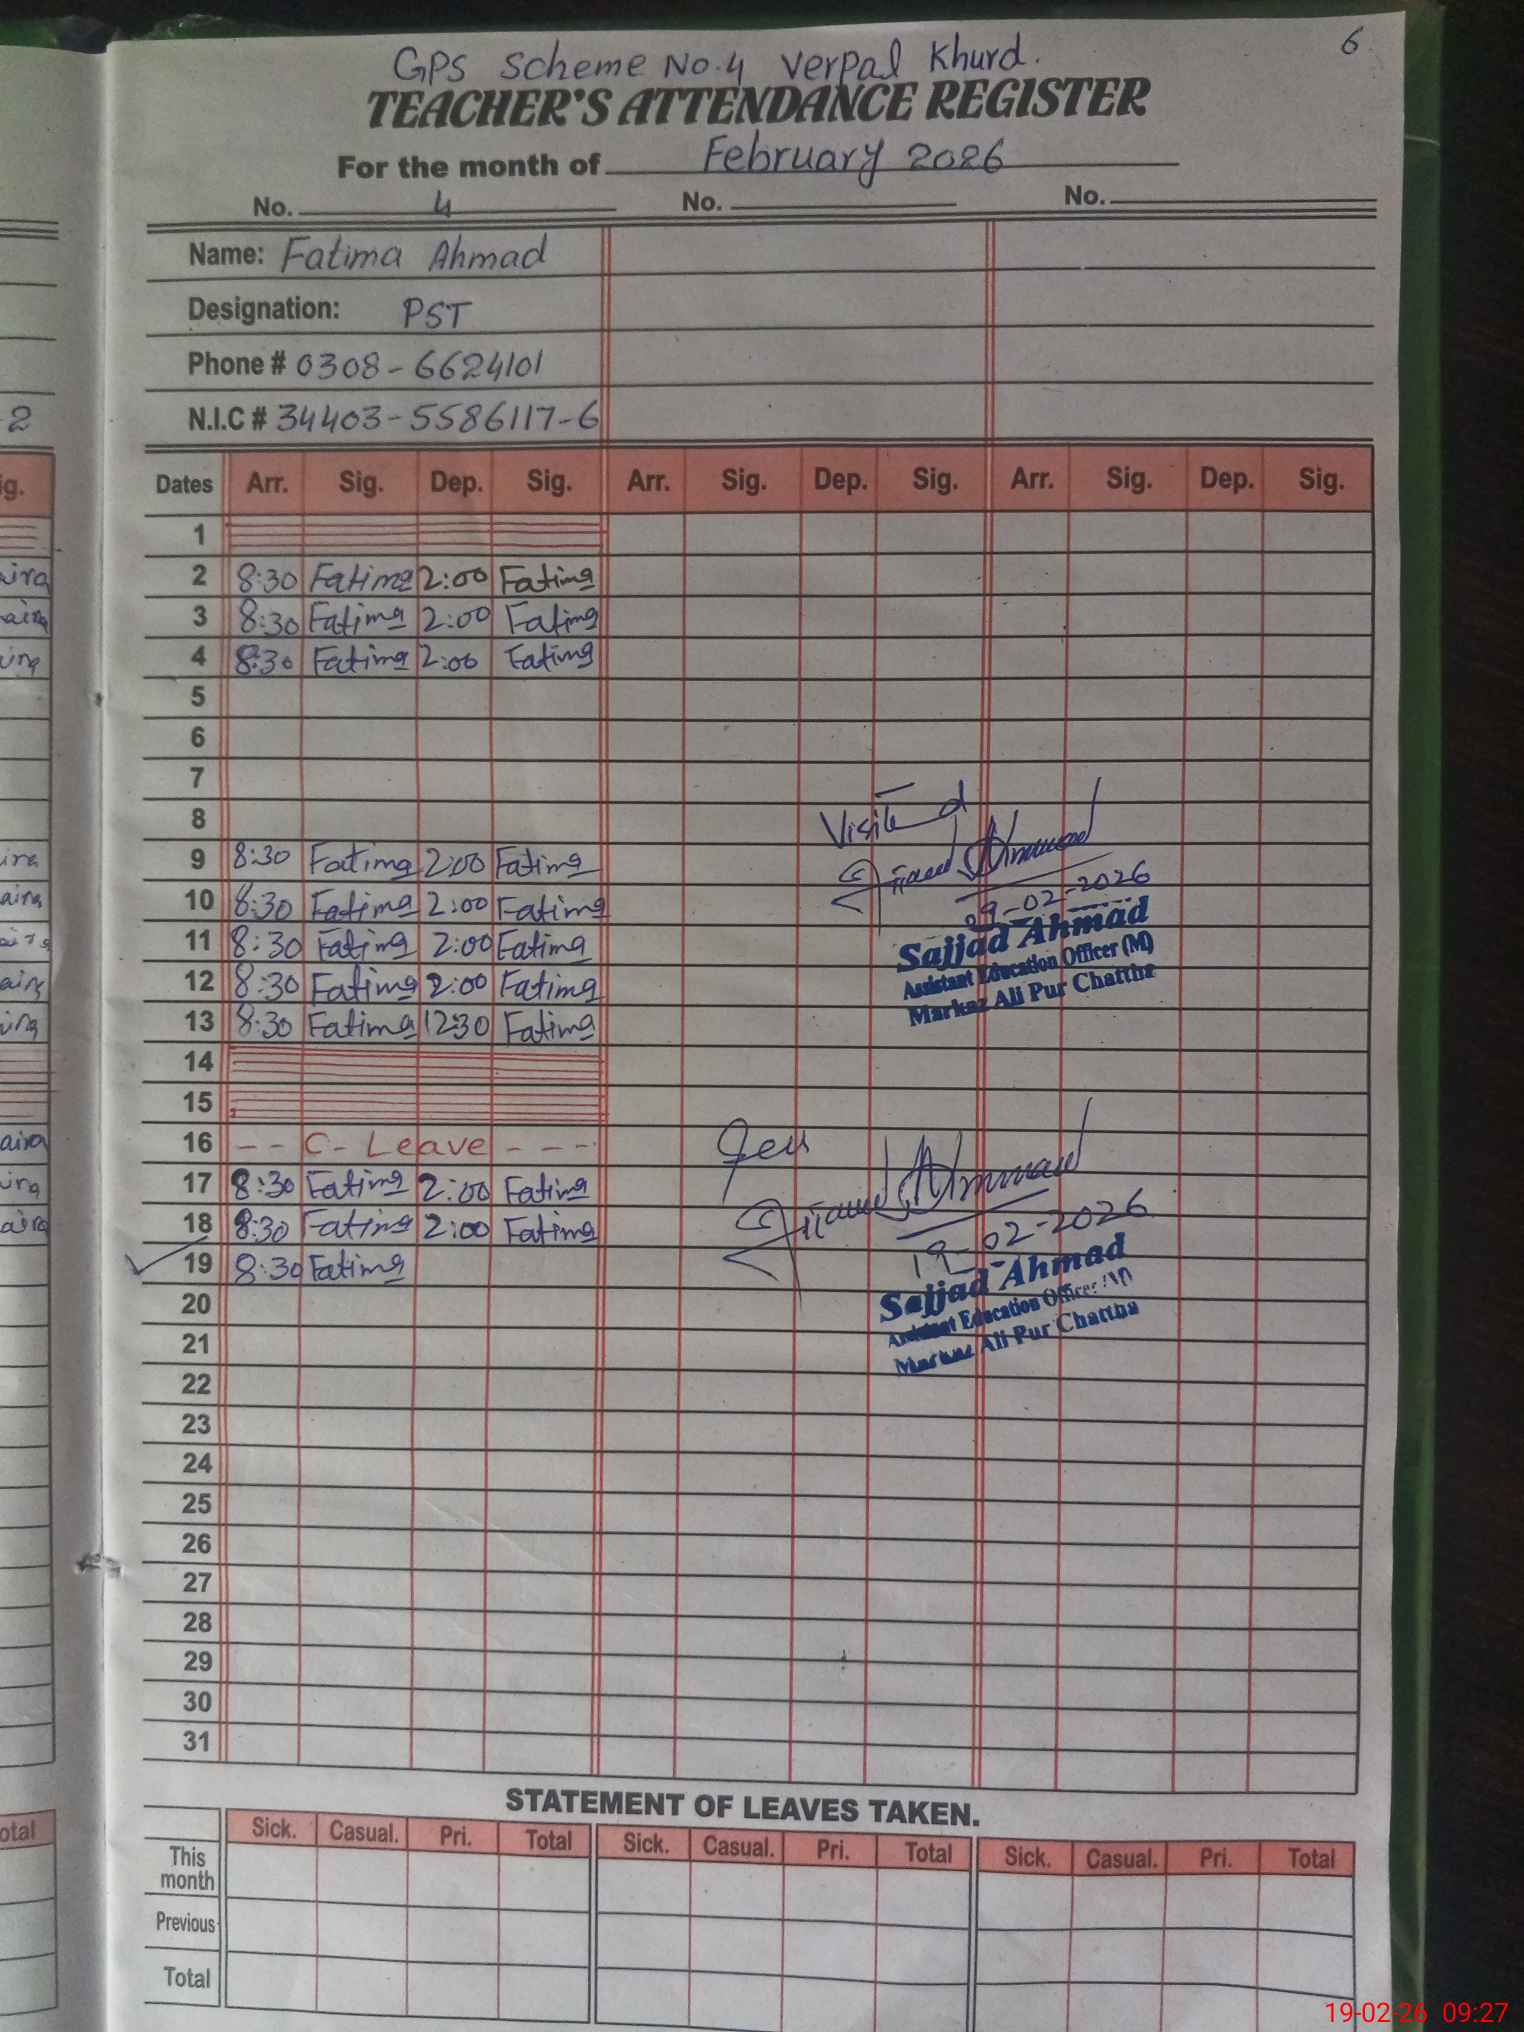 6
GPS Scheme No.4 Verpal Khurd.
TEACHER'S ATTENDANCE REGISTER
For the month of February 2026
No. 4 No. No.
Name: Fatima Ahmad
Designation: PST
Phone # 0308-6624101
N.I.C # 34403-5586117-6
2
ig.
Dates Arr. Sig. Dep. Sig. Arr. Sig. Dep. Sig. Arr. Sig. Dep. Sig.
1
2 8:30 Fatima 2:00 Fatima
3 8:30 Fatima 2:00 Fatima
4 8:30 Fatima 2:00 Fatima
5
6
7
8
Visited
9 8:30 Fatima 2:00 Fatima
10 8:30 Fatima 2:00 Fatima
11 8:30 Fatima 2:00 Fatima
12 8:30 Fatima 2:00 Fatima
13 8:30 Fatima 12:30 Fatima
-02-2026
Sajjad Ahmad
Assistant Education Officer (M)
Markaz Ali Pur Chattha
14
15
16 -- C-Leave ---
17 8:30 Fatima 2:00 Fatima
18 8:30 Fatima 2:00 Fatima
19 8:30 Fatima
19-02-2026
Sajjad Ahmad
Assistant Education Officer (M)
Markaz Ali Pur Chattha
20
21
22
23
24
25
26
27
28
29
30
31
STATEMENT OF LEAVES TAKEN.
otal
Sick. Casual. Pri. Total Sick. Casual. Pri. Total Sick. Casual. Pri. Total
This
month
Previous
Total
19-02-26 09:27